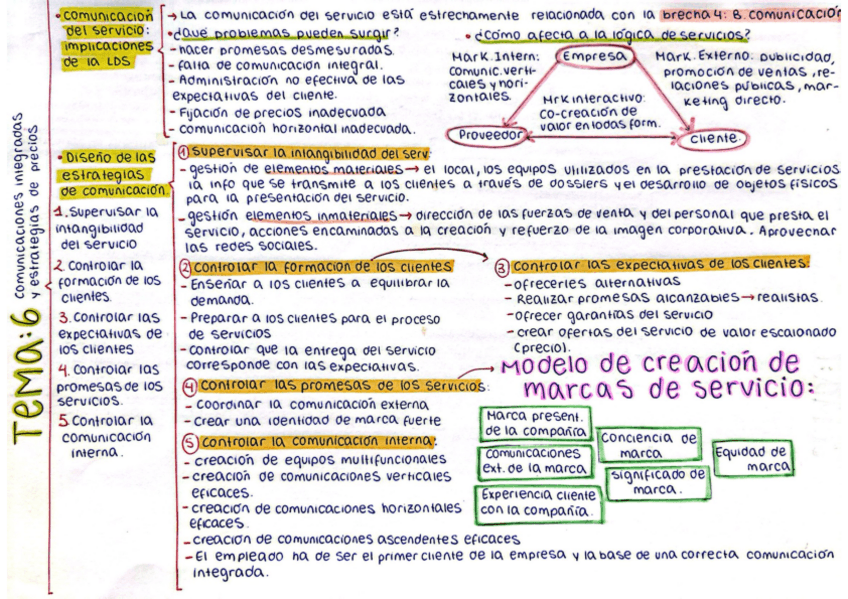 TEMA:6
comunicaciones integradas
y estrategias de precios
• comunicación
del servicio:
implicaciones
de la LDS
→ La comunicación del servicio está estrechamente relacionada con la brecha 4: B. comunicación
• ¿Qué problemas pueden surgir?
- hacer promesas desmesuradas.
- falta de comunicación integral.
- Administración no efectiva de las
expectativas del cliente.
- Fijación de precios inadecuada
- comunicación horizontal inadecuada.
• ¿Cómo afecta a la lógica de servicios?
Mark. Intern:
comunic. verti-
cales y hori-
zontales.
Empresa
Mark. Externo: publicidad,
promoción de ventas, re-
laciones públicas, mar-
keting directo.
Mrk interactivo:
co-creación de
valor en todas form.
Proveedor
cliente.
• Diseño de las
estrategias
de comunicación
1. Supervisar la
intangibilidad
del servicio
2. Controlar la
formación de los
clientes.
3. Controlar las
expectativas de
los clientes
4. Controlar las
promesas de los
servicios.
5. Controlar la
comunicación
interna.
① Supervisar la intangibilidad del serv:
- gestión de elementos materiales → el local, los equipos utilizados en la prestación de servicios
la info que se transmite a los clientes a través de dossiers y el desarrollo de objetos físicos
para la presentación del servicio.
- gestión elementos inmateriales → dirección de las fuerzas de venta y del personal que presta el
servicio, acciones encaminadas a la creación y refuerzo de la imagen corporativa. Aprovechar
las redes sociales.
② Controlar la formación de los clientes
- Enseñar a los clientes a equilibrar la
demanda.
- Preparar a los clientes para el proceso
de servicios
- Controlar que la entrega del servicio
corresponde con las expectativas.
③ Controlar las expectativas de los clientes:
- ofrecerles alternativas
- Realizar promesas alcanzables → realistas.
- ofrecer garantías del servicio
- crear ofertas del servicio de valor escalonado
(precio).
④ Controlar las promesas de los servicios:
- Coordinar la comunicación externa
- Crear una identidad de marca fuerte
⑤ Controlar la comunicación interna:
- creación de equipos multifuncionales
- creación de comunicaciones verticales
eficaces.
- creación de comunicaciones horizontales
eficaces.
- creación de comunicaciones ascendentes eficaces
- El empleado ha de ser el primer cliente de la empresa y la base de una correcta comunicación
integrada.
→ Modelo de creación de
marcas de servicio:
Marca present.
de la compañía
comunicaciones
ext. de la marca
Experiencia cliente
con la compañía.
Conciencia de
marca
significado de
marca.
Equidad de
marca